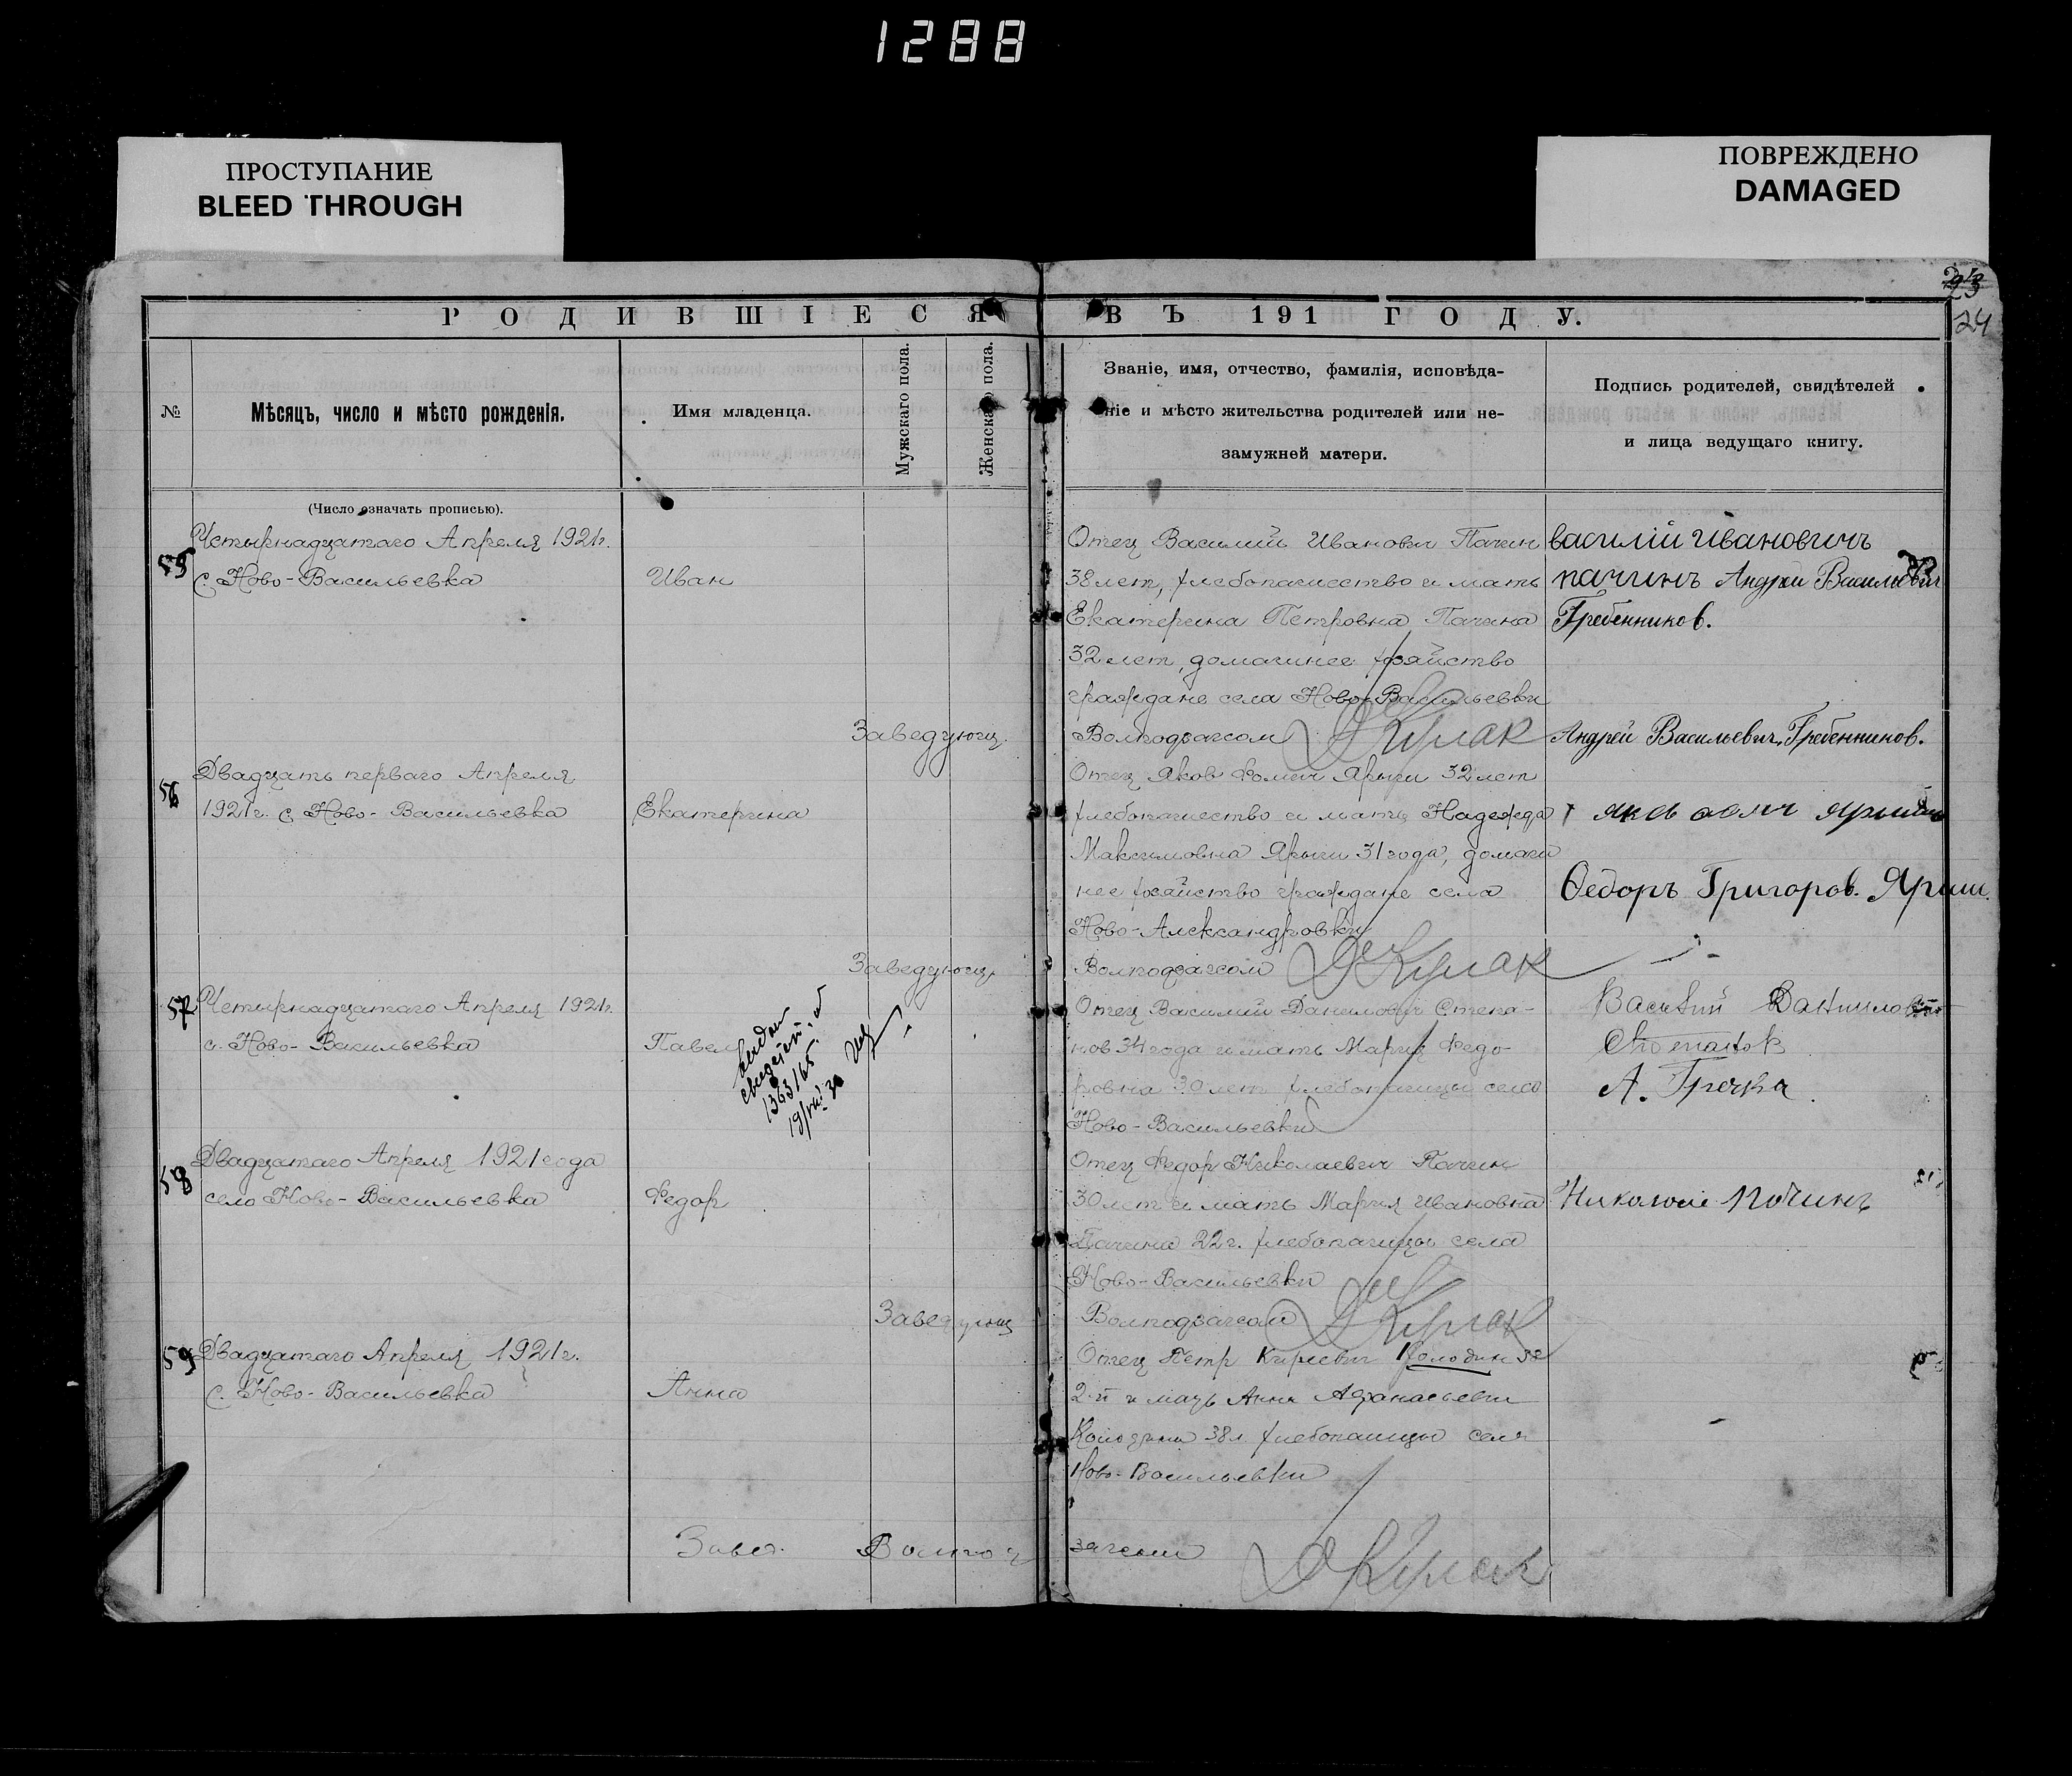 1288
ПРОСТУПАНИЕ
BLEED THROUGH
ПОВРЕЖДЕНО
DAMAGED
24
РОДИВШІЕСЯ ВЪ 191 ГОДУ.
№
Мѣсяцъ, число и мѣсто рожденія.
Имя младенца.
Мужскаго пола.
Женскаго пола.
Званіе, имя, отчество, фамилія, исповѣда-
ніе и мѣсто жительства родителей или не-
замужней матери.
Подпись родителей, свидѣтелей
и лица ведущаго книгу.
(Число означать прописью).
55
Четырнадцатаго Апреля 1921г.
с. Ново-Васильевка
Иван
Отец Василий Иванович Пачин
38 лет, хлебопашество и мать
Екатерина Петровна Пачина
32 лет, домашнее хозяйство
граждане села Ново-Васильевки
василій ивановичъ
пачинъ Андрей Васильевич
Гребенников.
Заведующ. Волподзагсом Кулак
Андрей Васильевич Гребенников.
56
Двадцать перваго Апреля
1921г. с Ново-Васильевка
Екатерина
Отец Яков Фомич Ярыш 32 лет
хлебопашество и мать Надежда
Максимовна Ярыш 31 года, домаш
нее хозяйство граждане села
Ново-Александровки
Ѳедоръ Григоров. Ярыш.
Заведующ. Волподзагсом Кулак
57
Четырнадцатаго Апреля 1921г.
с. Ново-Васильевка
Павел
1363165
Отец Василий Данилович Степа-
нов 34 года и мать Мария Федо-
ровна 30 лет хлебопашцы села
Ново-Васильевки
Василий Данилович
Степанов
А. Гречка
58
Двадцатаго Апреля 1921 года
село Ново-Васильевка
Федор
Отец Федор Николаевич Пачин
30 лет и мать Мария Ивановна
Пачина 22 г. хлебопашцы села
Ново-Васильевки
Николай Починъ
Заведующ Волподзагсом Кулак
59
Двадцатаго Апреля 1921г.
с. Ново-Васильевка
Анна
Отец Петр Колодин 32
2-й и мать Анна Афанасьевн
38 л хлебопашцы села
Ново-Васильевки
Завед. Волпод загсом Кулак